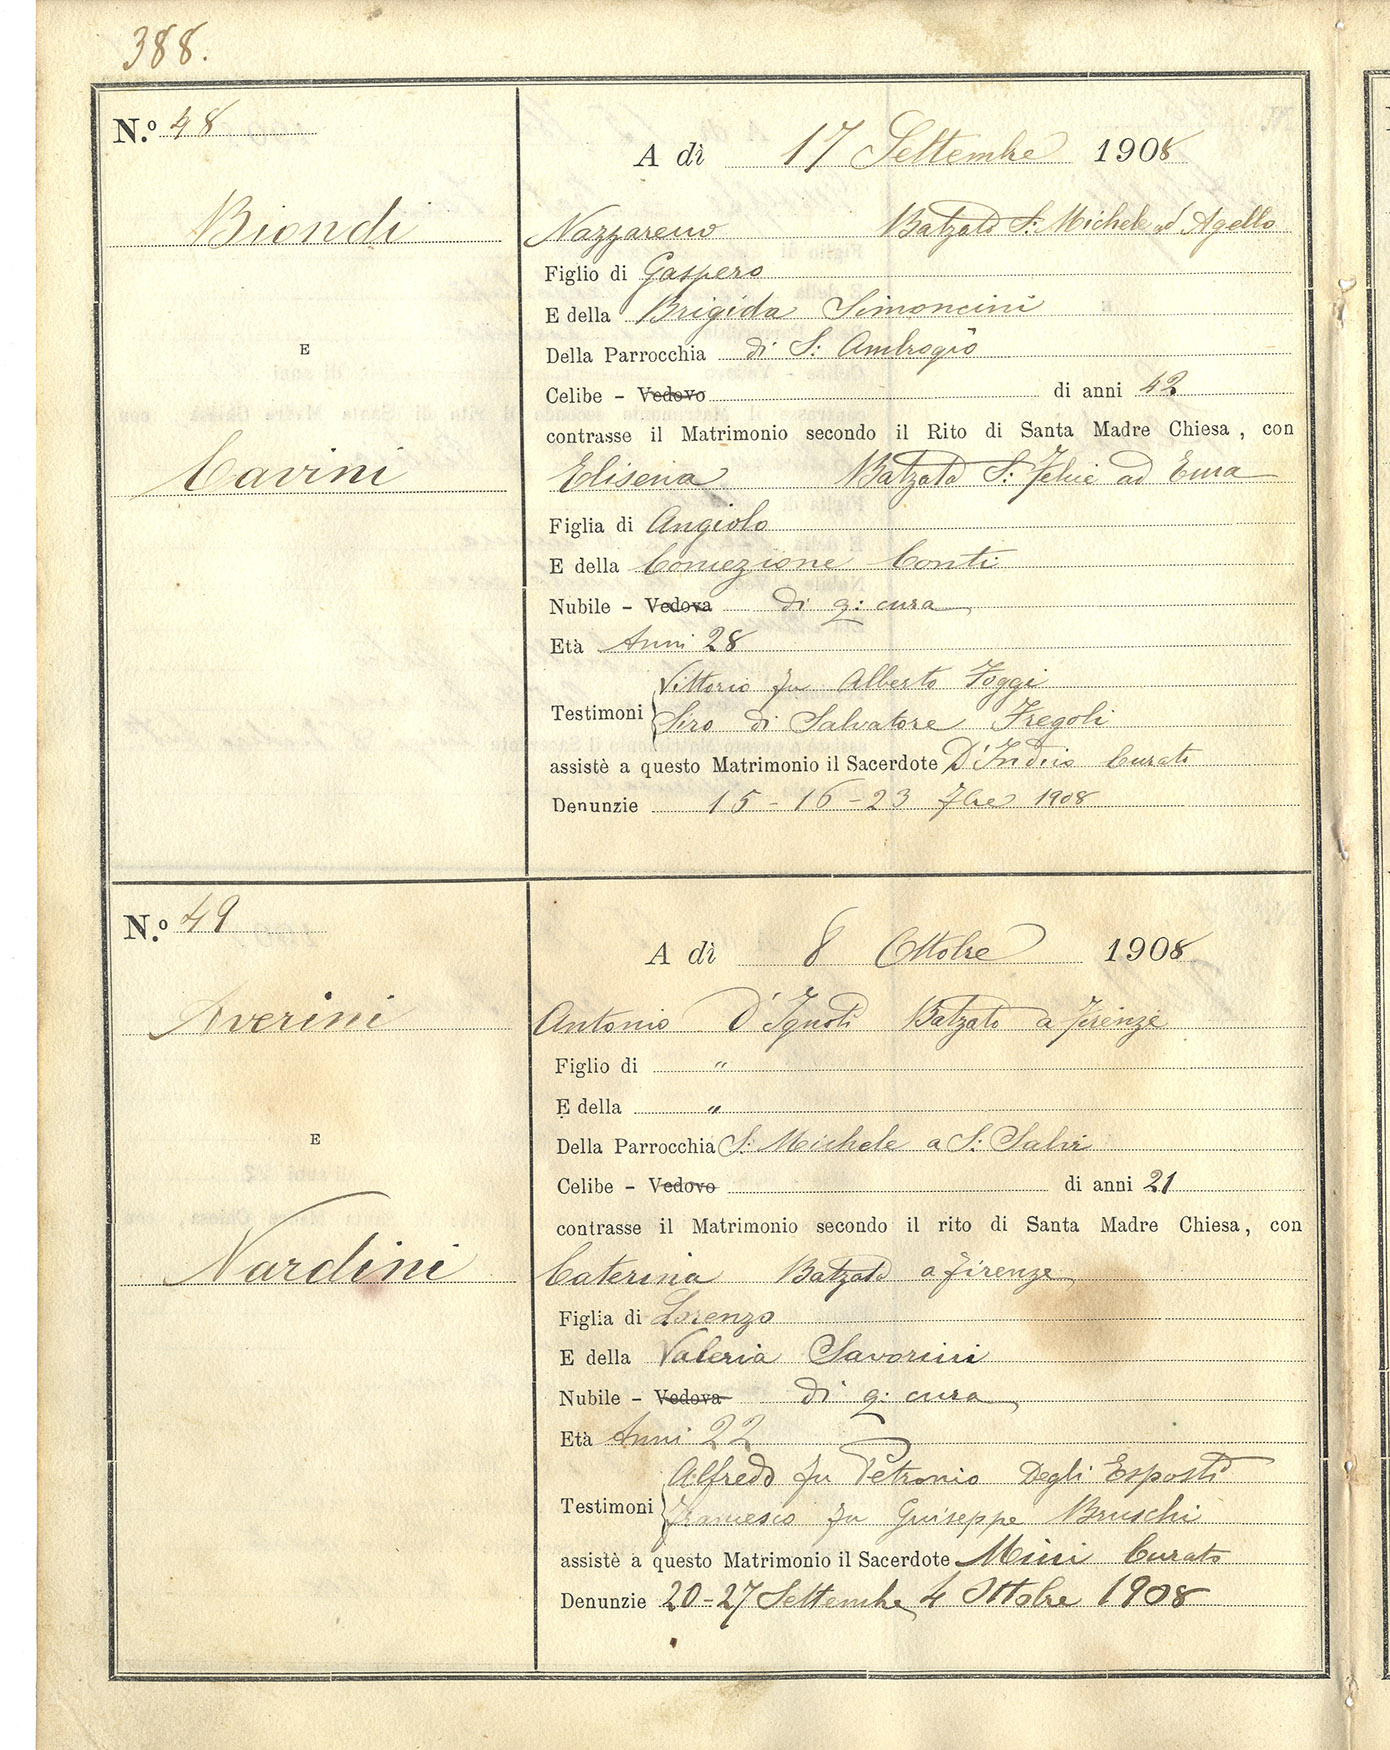 388.
N.º 48
A dì 17 Settembre 1908
Biondi
Nazzareno Batzato S: Michele ad Agello
Figlio di Gaspero
E della Brigida Simoncini
E
Della Parrocchia di S: Ambrogio
Celibe - Vedovo di anni 42
contrasse il Matrimonio secondo il Rito di Santa Madre Chiesa, con
Cavini
Elisena Batzata S: Felice ad Ema
Figlia di Angiolo
E della Concezione Conti
Nubile - Vedova di q: cura
Età Anni 28
Vittorio fu Alberto Foggi
Testimoni
di Salvatore Fregoli
assistè a questo Matrimonio il Sacerdote Curato
Denunzie 15 - 16 - 23 7bre 1908
N.º 49
A dì 8 Ottobre 1908
Averini
Antonio D'Ignoti Batzato a Firenze
Figlio di "
E della "
E
Della Parrocchia S: Michele a S: Salvi
Celibe - Vedovo di anni 21
contrasse il Matrimonio secondo il rito di Santa Madre Chiesa, con
Nardini
Caterina Batzata a Firenze
Figlia di Lorenzo
E della Valeria Savorini
Nubile - Vedova di q: cura
Età Anni 22
Alfredo fu Petronio Degli Esposti
Testimoni
Francesco fu Guiseppe Bruschi
assistè a questo Matrimonio il Sacerdote Mini Curato
Denunzie 20-27 Settembre 4 Ottobre 1908